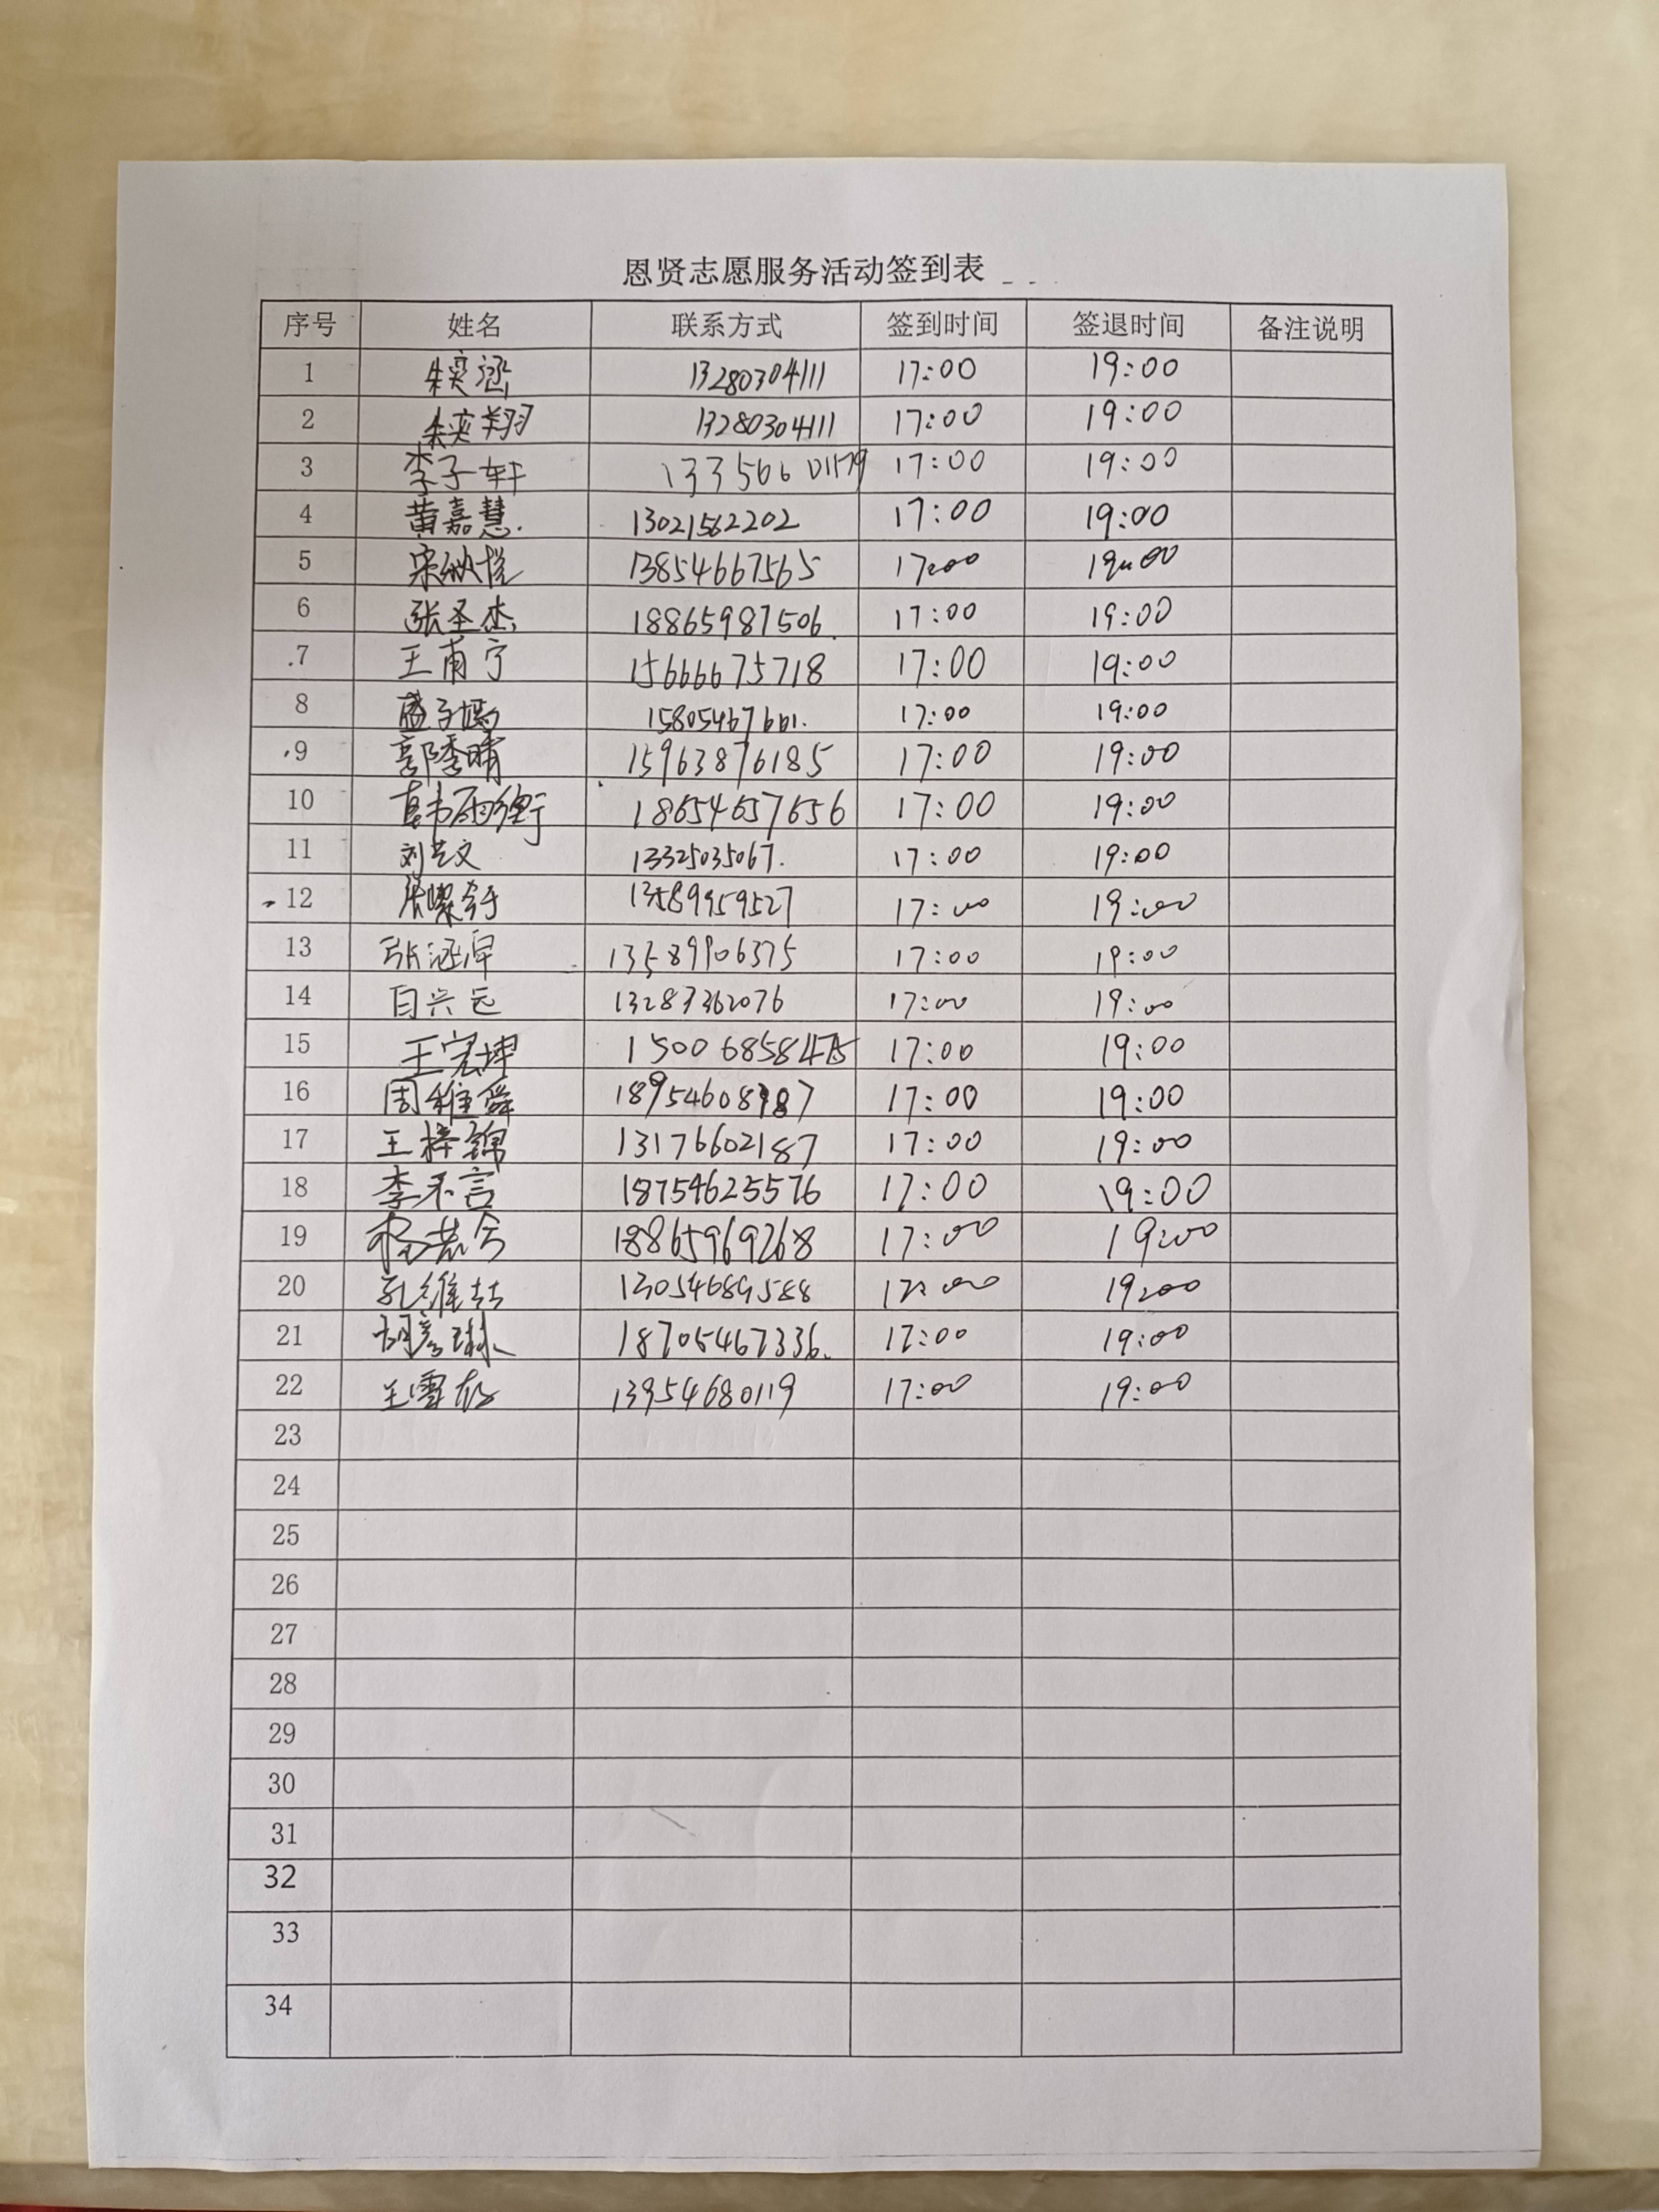 恩贤志愿服务活动签到表
序号 姓名 联系方式 签到时间 签退时间 备注说明
1 朱奕涵 13280304111 17:00 19:00
2 朱奕翔 13280304111 17:00 19:00
3 李子轩 17:00 19:00
4 黄嘉慧. 13021562202 17:00 19:00
5 13854667565 17:00 19:00
6 张圣杰 18865987506. 17:00 19:00
7 王甫宁 15666675718 17:00 19:00
8 17:00 19:00
9 郭季晴 15963876185 17:00 19:00
10 18654657656 17:00 19:00
11 刘艺文 13325035067. 17:00 19:00
12 13589959527 17:00 19:00
13 13589906375 17:00 19:00
14 白兴远 13287362076 17:00 19:00
15 王宏坤 17:00 19:00
16 周维舜 17:00 19:00
17 王梓锦 13176602187 17:00 19:00
18 李不言 18754625576 17:00 19:00
19 18865969268 17:00 19:00
20 13054689588 17:00 19:00
21 18705467336. 17:00 19:00
22 13954680119 17:00 19:00
23
24
25
26
27
28
29
30
31
32
33
34